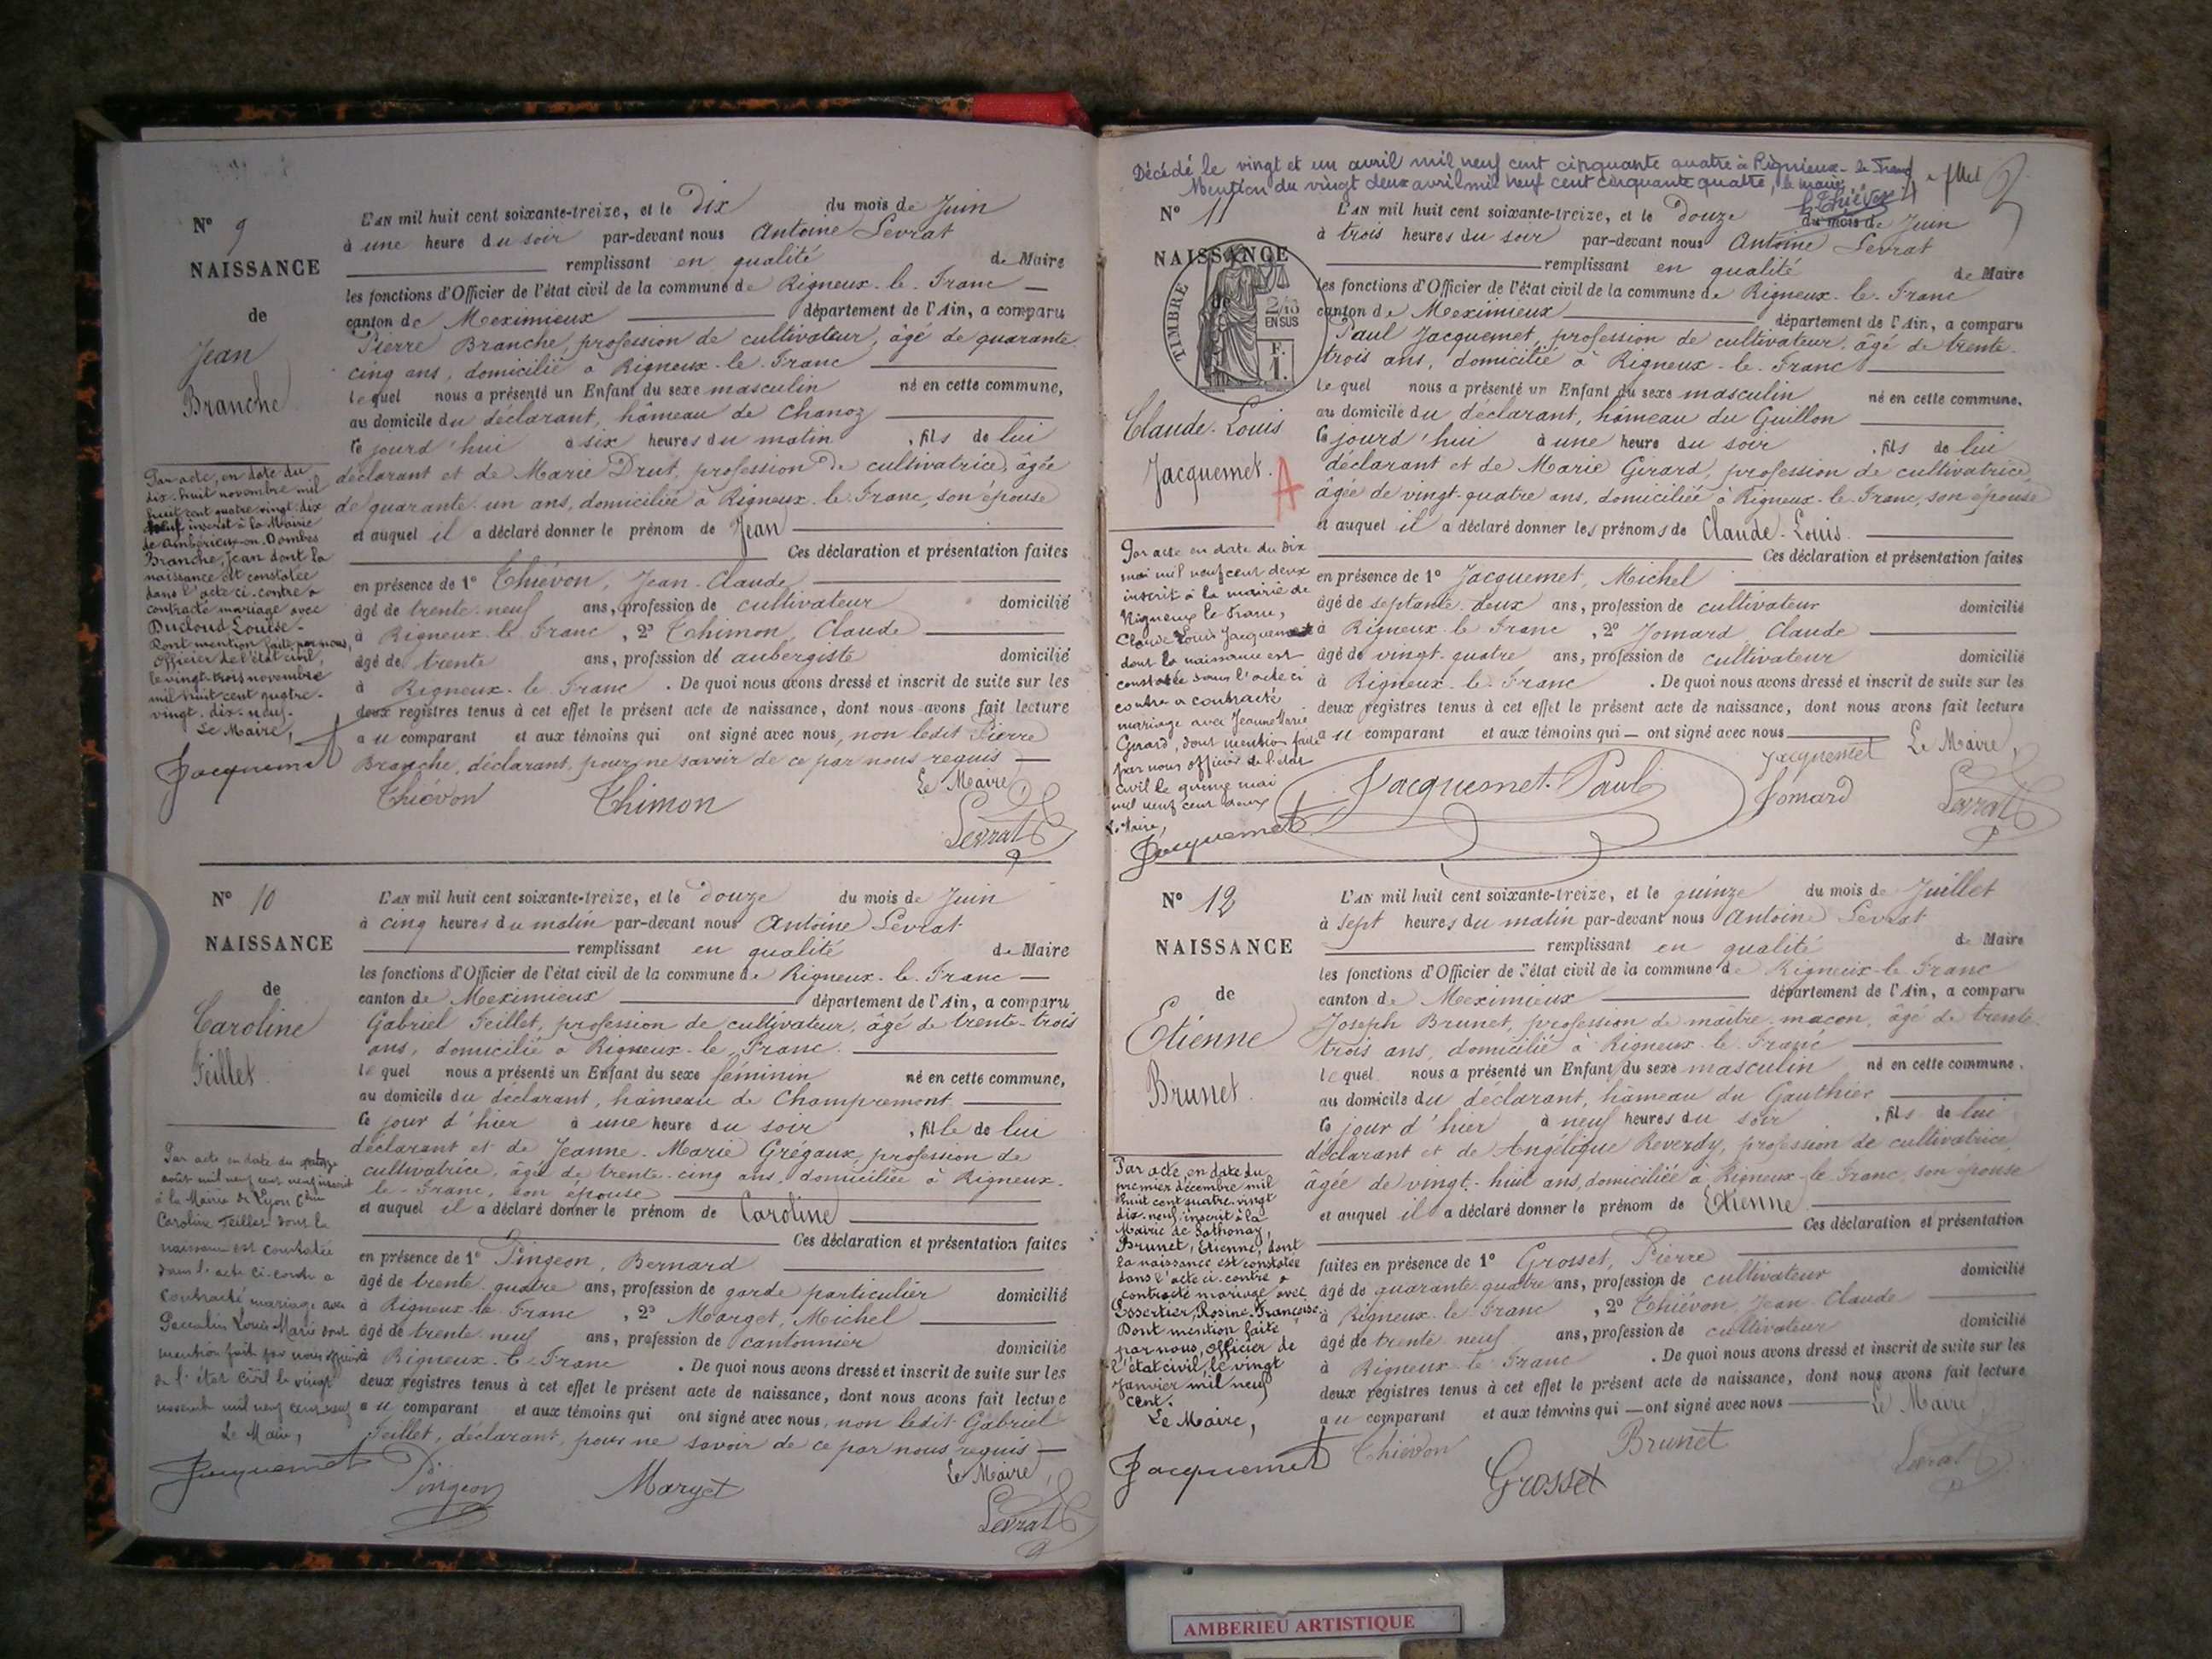 N° 9
NAISSANCE
de
Jean
Branche
Par acte, en date du
dix-huit novembre mil
huit cent quatre vingt dix
neuf inscrit à la Mairie
de Ambérieux-en-Dombes
Branche, Jean dont la
naissance est constatée
dans l'acte ci-contre a
contracté mariage avec
Ducloud Louise.
Dont mention faite par nous,
Officier de l'état civil,
le vingt-trois novembre
mil huit cent quatre-
vingt-dix-neuf.
Le Maire,
Jacquemet
L'AN mil huit cent soixante-treize, et le Dix du mois de Juin
à une heure du soir par-devant nous Antoine Levrat
remplissant en qualité de Maire
les fonctions d'Officier de l'état civil de la commune de Rigneux-le-Franc
canton de Meximieux département de l'Ain, a comparu
Pierre Branche, profession de cultivateur, âgé de quarante
cinq ans, domicilié à Rigneux-le-Franc
lequel nous a présenté un Enfant du sexe masculin né en cette commune,
au domicile du déclarant, hâmeau de Chanoz
ce jourd'hui à six heures du matin, fils de lui
déclarant et de Marie Drut, profession de cultivatrice, âgée
de quarante-un ans, domiciliée à Rigneux-le-Franc, son épouse
et auquel il a déclaré donner le prénom de Jean
Ces déclaration et présentation faites
en présence de 1° Thiévon, Jean-Claude
âgé de trente-neuf ans, profession de cultivateur domicilié
à Rigneux-le-Franc, 2° Thimon, Claude
âgé de trente ans, profession de aubergiste domicilié
à Rigneux-le-Franc. De quoi nous avons dressé et inscrit de suite sur les
deux registres tenus à cet effet le présent acte de naissance, dont nous avons fait lecture
au comparant et aux témoins qui ont signé avec nous, non ledit Pierre
Branche, déclarant, pour ne savoir de ce par nous requis
Le Maire
Thiévon Thimon Levrat
N° 10
NAISSANCE
de
Caroline
Teillet
Par acte en date du
août mil neuf cent neuf inscrit
à la Mairie de Lyon 6ème
Caroline Teillet dont la
naissance est constatée
dans l'acte ci-contre a
contracté mariage avec
Louis Marie dont
mention faite par nous officier
de l'état civil le vingt
mil neuf cent neuf
Le Maire,
Jacquemet
L'AN mil huit cent soixante-treize, et le Douze du mois de Juin
à cinq heures du matin par-devant nous Antoine Levrat
remplissant en qualité de Maire
les fonctions d'Officier de l'état civil de la commune de Rigneux-le-Franc
canton de Meximieux département de l'Ain, a comparu
Gabriel Teillet, profession de cultivateur, âgé de trente-trois
ans, domicilié à Rigneux-le-Franc.
lequel nous a présenté un Enfant du sexe féminin né en cette commune,
au domicile du déclarant, hâmeau de Champremont
ce jour d'hier à une heure du soir, fille de lui
déclarant et de Jeanne-Marie Grégaux, profession de
cultivatrice, âgée de trente-cinq ans, domiciliée à Rigneux-
le-Franc, son épouse
et auquel il a déclaré donner le prénom de Caroline
Ces déclaration et présentation faites
en présence de 1° Pingeon, Bernard
âgé de trente-quatre ans, profession de garde particulier domicilié
à Rigneux-le-Franc, 2° Marget, Michel
âgé de trente-neuf ans, profession de cantonnier domicilié
à Rigneux-le-Franc. De quoi nous avons dressé et inscrit de suite sur les
deux registres tenus à cet effet le présent acte de naissance, dont nous avons fait lecture
au comparant et aux témoins qui ont signé avec nous, non ledit Gabriel
Teillet, déclarant, pour ne savoir de ce par nous requis
Le Maire,
Pingeon Marget Levrat
Décédé le vingt et un avril mil neuf cent cinquante quatre à Rignieux-le-Franc
Mention du vingt deux avril mil neuf cent cinquante quatre, le maire,
N° 11
NAISSANCE
de
TIMBRE
2/10
EN SUS
F.
1.
Claude-Louis
Jacquemet.
A
Par acte en date du dix
mai mil neuf cent deux
inscrit à la mairie de
Rigneux le Franc,
Claude Louis Jacquemet
dont la naissance est
constatée dans l'acte ci
contre a contracté
mariage avec Jeanne Marie
Girard, dont mention faite
par nous officier de l'état
civil le quinze mai
mil neuf cent deux
Le Maire,
Jacquemet
L'AN mil huit cent soixante-treize, et le Douze du mois de Juin
à trois heures du soir par-devant nous Antoine Levrat
remplissant en qualité de Maire
les fonctions d'Officier de l'état civil de la commune de Rigneux-le-Franc
canton de Meximieux département de l'Ain, a comparu
Paul Jacquemet, profession de cultivateur, âgé de trente-
trois ans, domicilié à Rigneux-le-Franc
lequel nous a présenté un Enfant du sexe masculin né en cette commune,
au domicile du déclarant, hâmeau du Guillon
ce jourd'hui à une heure du soir, fils de lui
déclarant et de Marie Girard, profession de cultivatrice,
âgée de vingt-quatre ans, domiciliée à Rigneux-le-Franc, son épouse
et auquel il a déclaré donner les prénoms de Claude-Louis.
Ces déclaration et présentation faites
en présence de 1° Jacquemet, Michel
âgé de septante-deux ans, profession de cultivateur domicilié
à Rigneux-le-Franc, 2° Jomard, Claude
âgé de vingt-quatre ans, profession de cultivateur domicilié
à Rigneux-le-Franc. De quoi nous avons dressé et inscrit de suite sur les
deux registres tenus à cet effet le présent acte de naissance, dont nous avons fait lecture
au comparant et aux témoins qui ont signé avec nous
Jacquemet Le Maire,
Jacquemet Paul Jomard Levrat
N° 12
NAISSANCE
de
Etienne
Brunet.
Par acte, en date du
premier décembre mil
huit cent quatre-vingt
dix-neuf, inscrit à la
Mairie de Sathonay,
Brunet, Etienne, dont
la naissance est constatée
dans l'acte ci-contre a
contracté mariage avec
Essertier, Rosine-Françoise.
Dont mention faite
par nous, officier de
l'état civil, le vingt
janvier mil neuf
cent.
Le Maire,
Jacquemet
L'AN mil huit cent soixante-treize, et le quinze du mois de Juillet
à sept heures du matin par-devant nous Antoine Levrat
remplissant en qualité de Maire
les fonctions d'Officier de l'état civil de la commune de Rigneux-le-Franc
canton de Meximieux département de l'Ain, a comparu
Joseph Brunet, profession de maître-maçon, âgé de trente-
trois ans, domicilié à Rigneux-le-Franc
lequel nous a présenté un Enfant du sexe masculin né en cette commune,
au domicile du déclarant, hâmeau du Gauthier
ce jour d'hier à neuf heures du soir, fils de lui
déclarant et de Angélique Reverdy, profession de cultivatrice,
âgée de vingt-huit ans, domiciliée à Rigneux-le-Franc, son épouse
et auquel il a déclaré donner le prénom de Etienne
Ces déclaration et présentation
faites en présence de 1° Grosset, Pierre
âgé de quarante-quatre ans, profession de cultivateur domicilié
à Rigneux-le-Franc, 2° Thiévon, Jean-Claude
âgé de trente-neuf ans, profession de cultivateur domicilié
à Rigneux-le-Franc. De quoi nous avons dressé et inscrit de suite sur les
deux registres tenus à cet effet le présent acte de naissance, dont nous avons fait lecture
au comparant et aux témoins qui ont signé avec nous Le Maire
Thiévon Grosset Brunet Levrat
AMBERIEU ARTISTIQUE